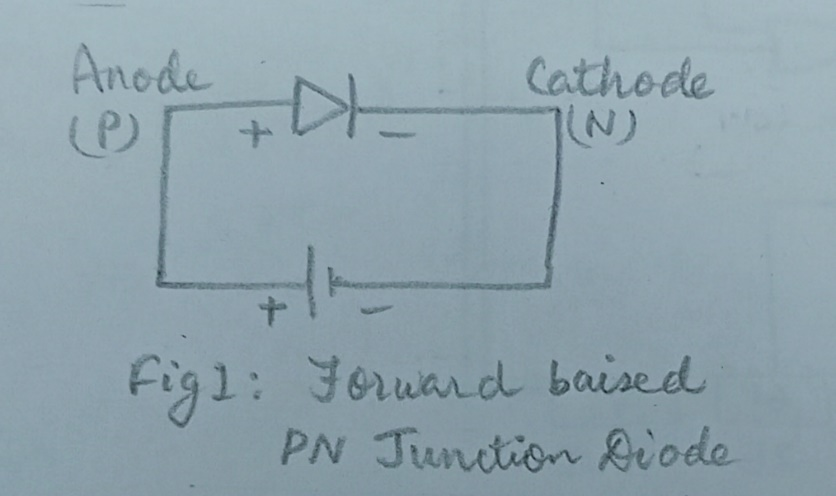 Anode
Cathode
(P)
(N)
+
-
+
-
Fig1: Forward baised
PN Junction Diode